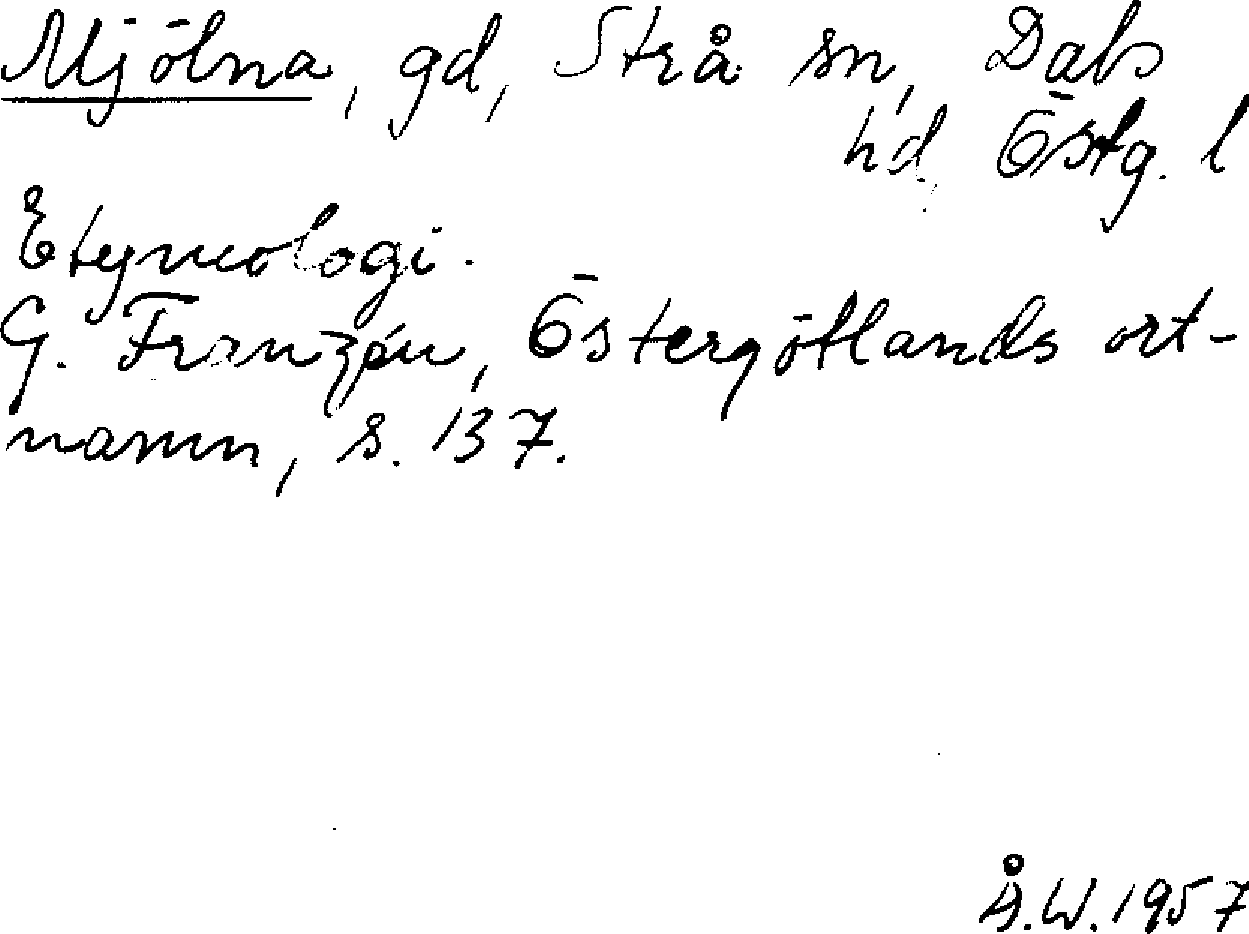 Mjölna, gd, Strå sn, Dals
hd. Östg. l
Etymologi.
G. Franzén, Östergötlands ort-
namn, s. 137.
Å.W. 1957